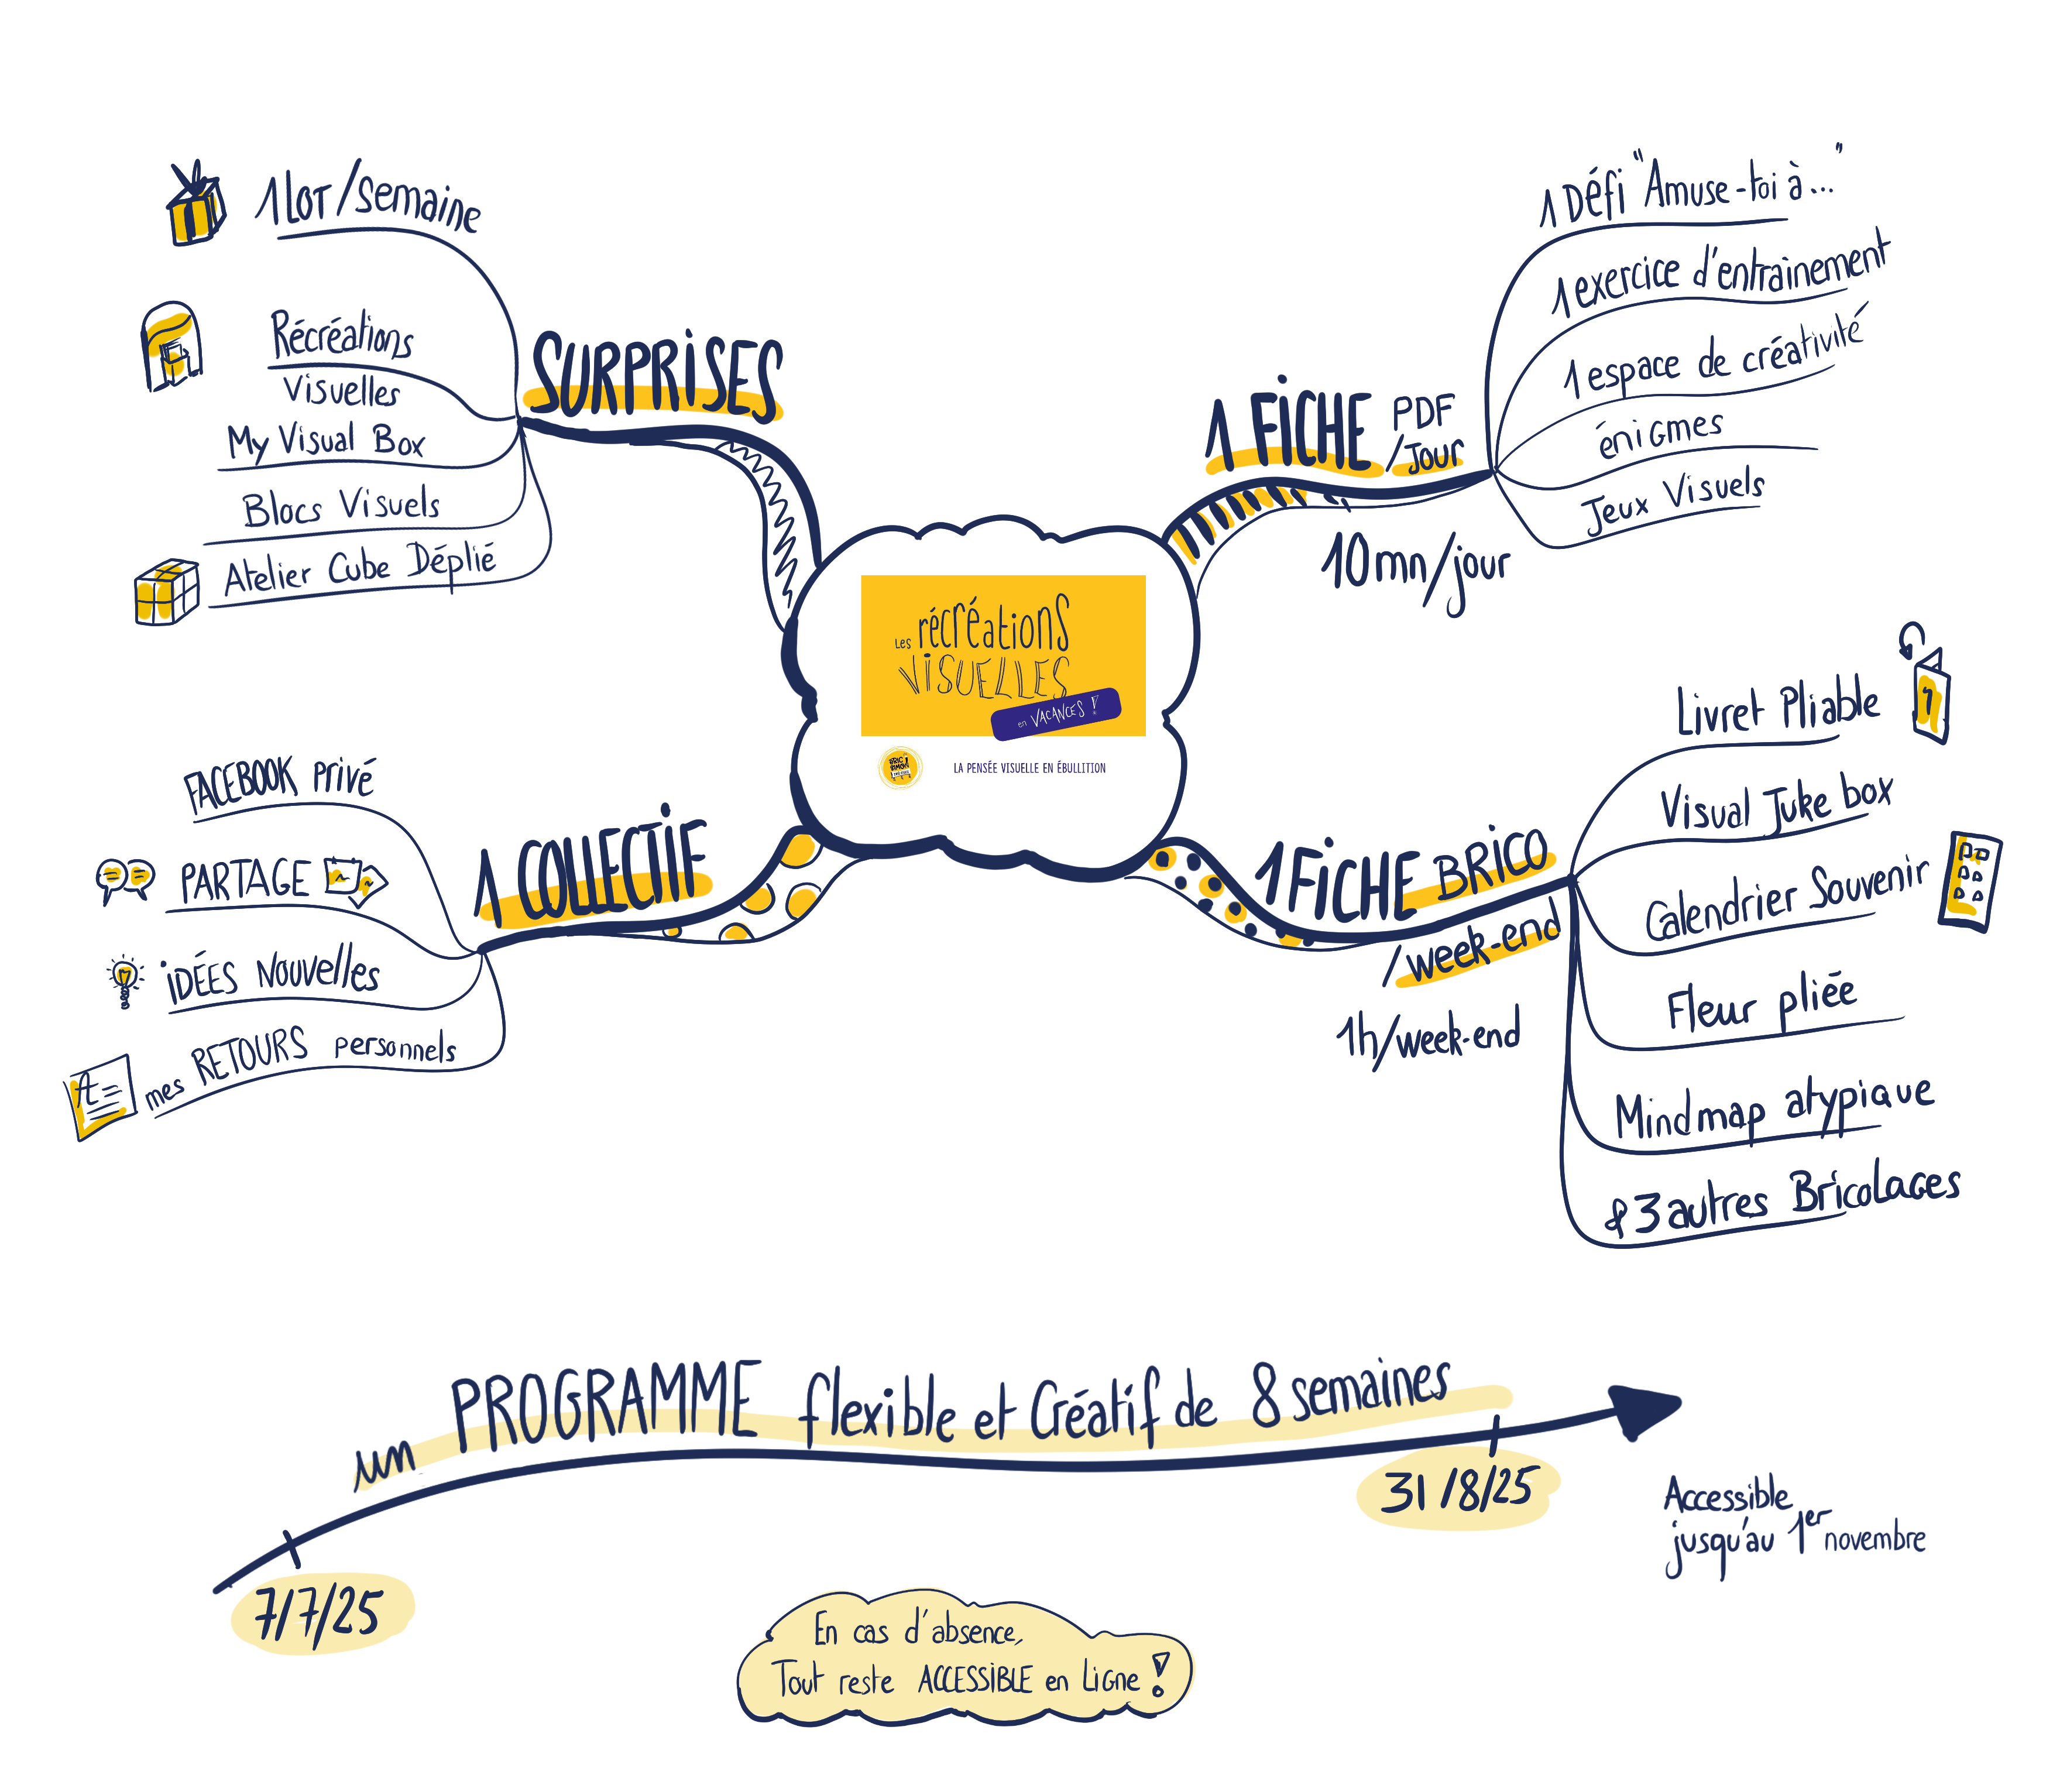 Les récréations
VISUELLES
en VACANCES !
LA PENSÉE VISUELLE EN ÉBULLITION
1 FICHE PDF
/Jour
10mn/jour
1 Défi "Amuse-toi à..."
1 exercice d'entrainement
1 espace de créativité
énigmes
Jeux Visuels
1 FICHE BRICO
/week-end
1h/week-end
Livret Pliable
Visual Juke box
Calendrier Souvenir
Fleur pliée
Mindmap atypique
& 3 autres Bricolages
1 COLLECTIF
FACEBOOK privé
PARTAGE
iDÉES Nouvelles
mes RETOURS personnels
SURPRISES
1 LOT/semaine
Récréations
Visuelles
My Visual Box
Blocs Visuels
Atelier Cube Déplié
un PROGRAMME flexible et Créatif de 8 semaines
7/7/25
31/8/25
Accessible
jusqu'au 1er novembre
En cas d'absence,
Tout reste ACCESSIBLE en Ligne !